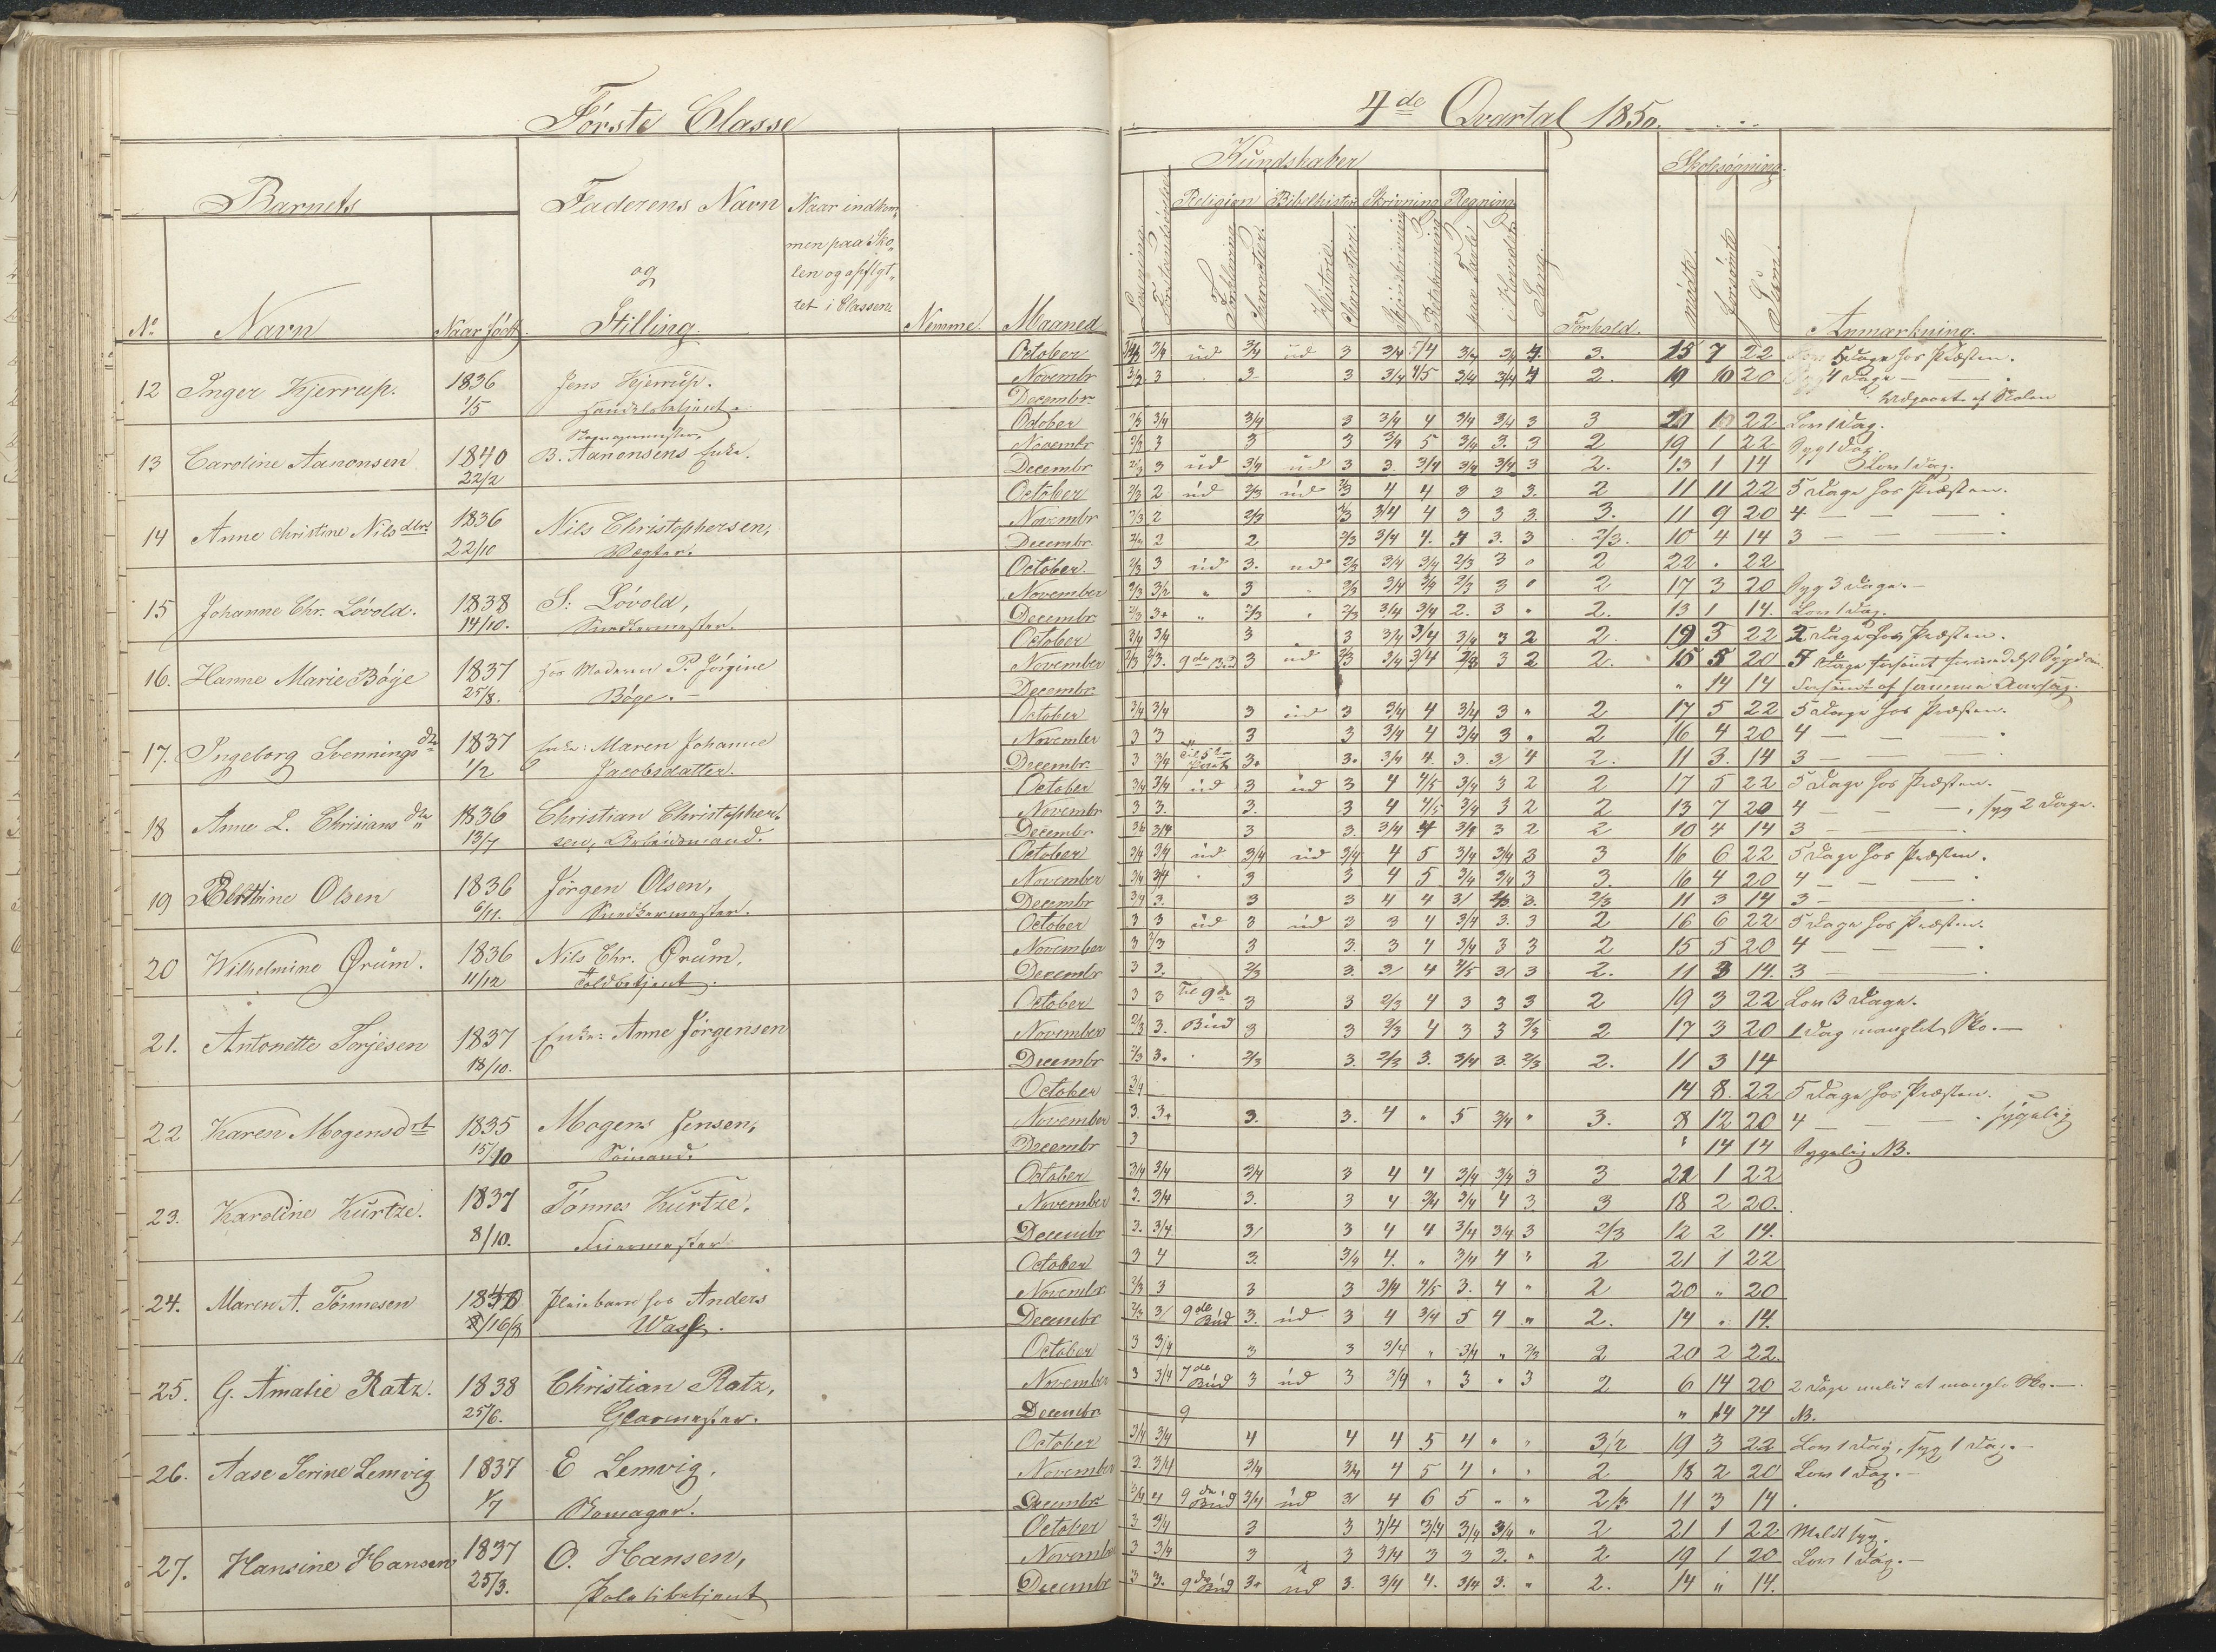 Første Classe
4de Qvartal 1850.
Barnets
Faderens Navn og Stilling.
Naar indkommen paa Skolen og opflyttet i Classen.
Nemme.
Maaned
Kundskaber
Forhold.
Skolesøgning.
Anmærkning.
No
Navn
Naar født
Religion Bibelhistorie Skrivning Regning
Forklaring
Historie
paa Tavle
Sang.
mødte
forsømte
Sum.
12 Inger Kjerrup. 1836 1/5 Jens Kjerrup.
October 3/4 ud 3/4 ud 3 3/4 3. 15 7 22 5 Dage hos Præsten.
Novembr 3 3 3 3/4 4/5 3/4 3/4 4 2. 19 20 Dage
Decembr Udgaaet af Skolen
13 Caroline Aanonsen 1840 22/2 B. Aanonsens Enke.
October 2/3 3/4 3/4 3 3/4 4 3/4 3/4 3 3 22 Lov 1 Dag.
Novembr 2/3 3 3 3 3/4 5 3/4 3. 3 2 19 1 22 Syg 1 Dag.
Decembr 2/3 3 ud 3/4 ud 3 3 3/4 3/4 3/4 3 2. 13 1 14 Lov 1 Dag.
14 Anne Christine Nilsdtr 1836 22/10 Nils Christophersen, Vægter.
October 2/3 2 ud 2/3 ud 2/3 4 4 3 3 3. 2 11 11 22 5 Dage hos Præsten.
Novembr 2/3 2 2/3 2/3 3/4 4 3 3 3. 3. 11 9 20 4 — — —
Decembr. 2 2 2/3 3/4 4. 4 3. 3 2/3. 10 4 14 3 — — —
15 Johanne Chr. Lövold. 1838 14/10. S: Lövold, Snedkermester.
October. 2/3 3 ud 3. ud 2/3 3/4 3/4 2/3 3 2 22 . 22
November 2/3 3/2 " 3 2/3 3/4 3/4 2/3 3 2 17 3 20 Syg 3 Dage.
Decembr 2/3 3. " 2/3 2/3 3/4 3/4 2. 3 2. 13 1 14. Lov 1 Dag.
16. Hanne Marie Böije 1837 25/8. hos Moderen P. Jörgine Böge.
October 3/4 3/4 3 3 3/4 3/4 3/4 3 2 2. 19 3 22 2 Dage hos Præsten.
November 2/3 2/3. 9de Bud 3 ud 2/3 3/4 3/4 3 2 2. 15 5 20
Decembr. " 14 14 Forsömt af samme Aarsag.
17. Ingeborg Svenningsdtr 1837 1/2 Enke: Maren Johanne Jacobsdatter.
October 3/4 3/4 3 ud 3 3/4 4 3/4 3 " 2 17 5 22 5 Dage hos Præsten.
November 3 3 3 3 3/4 4 3/4 3 " 2 16 4 20 4 — — —
Decembr. 3 3/4 3. 3. 3/4 4. 3. 3 4 2. 11 3. 14 3 — —
18 Anne L. Chrisiansdtr 1836 13/7 Christian Christophersen, Arbeidsmand.
October 3/4 3/4 ud 3 ud 3 4 4/5 3/4 3 2 2 17 5 22 5 Dage hos Præsten.
Novembr 3 3. 3. 3 4 4/5 3/4 3 2 2 13 7 20 4 — — —, syg 2 Dage.
Decembr 3/4 3 3. 3/4 4 3/4 3 2 2 10 4 14 3 —
19 Berthine Olsen 1836 6/11. Jörgen Olsen, Snedkermester.
October 3/4 3/4 ud 3/4 ud 3/4 4 5 3/4 3/4 3 3 16 6 22 5 Dage hos Præsten.
November 3/4 3/4 3 3 4 5 3/4 3/4 3 3. 16 4 20 4 — — —
Decembr 3/4 3. 3 3 4 4 3 2/3 3. 2/3 11 3 14 3 —
20 Wilhelmine Örum. 1836 11/12 Nils Chr. Örum, Toldbetjent.
October 3 3 ud 3 ud 3 3 4 3/4 3. 3 2 16 6 22 5 Dage hos Præsten.
November 3 2/3 3 3. 3 4 3/4 3 3 2 15 5 20 4 — —
Decembr 3 3. 2/3 3. 3 4 4/5 3 3 2. 11 3 14. 3 —
21. Antonette Terjesen 1837 18/10. Enke: Anne Jörgensen
October 3 3 Til 9de 3 3 2/3 4 3 3 3 2 19 3 22 Lov 3 Dage.
November 2/3 3. Bud 3 3 2/3 4 3 3 2/3 2 17 3 20 1 Dag manglet Sko.
Decembr 2/3 3. 2/3 3. 2/3 3. 3/4 3. 2/3 2. 11 3 14
22 Karen Mogensdt 1835 15/10 Mogens Jensen, Sömand.
October 3/4 14 8. 22 5 Dage hos Præsten.
November 3. 3. 3. 3. 4 " 5 3/4 " 3. 8 12 20 4 — — sygelig
Decembr 3 " 14 14 Sygelig NB.
23. Karoline Kurtze. 1837 8/10. Tönnes Kurtze,
October 3/4 3/4 3/4 3 4 4 3/4 3/4 3 3 21 1 22
November 3. 3/4 3. 3 4 3/4 3/4 4 3 3 18 2 20.
Decembr 3. 3/4 3 3 4 4 3/4 3/4 3 2/3 12 2 14.
24. Maren A. Tönnesen Pleiebarn hos Anders Wass.
October 3 4 3. 3/4 4. " 3/4 4 " 2 21 1 22
Novembr. 2/3 3 3 3 3/4 4/5 3. 4 " 2 20 " 20
Decembr 2/3 3 9de Bud 3. ud 3 4 3/4 5 4 " 2. 14 " 14.
25. G. Amalie Ratz. 1838 25/6. Christian Ratz, Glarmester.
October 3 3/4 3 3 3/4 " 3/4 " 2/3 2 20 2 22.
November 3 3/4 7de Bud 3 ud 3 3/4 " 3 " 3 2 6 14 20 2 Dage meldt at mangle Sko.
Decembr 9 " 14 14 NB.
26. Aase Serine Lemvig 1837 1/7 E Lemvig. Skomager.
October 3/4 3/4 4 4 4 5 4 " " 3/2 19 3 22 Lov 1 Dag, syg 1 Dag.
November 3. 3/4 3/4 3/4 4 5 4 " " 2 18 2 20 Lov 1 Dag.
Decembr. 3/4 4 9de Bud 3/4 ud 3 4 6 5 " " 2/3 11 3 14.
27. Hansine Hansen 1837 25/3. O. Hansen, Politibetjent
October 3 3/4 3 3 3/4 3/4 3/4 3/4 " 2 21 1 22 Meldt syg.
November 3 3/4 3 3 3/4 3 3 3. " 2 19 1 20 Lov 1 Dag.
Decembr 3 3. 9de Bud 3. ud 3. 3/4 4. 3/4 3. " 2. 14 " 14.